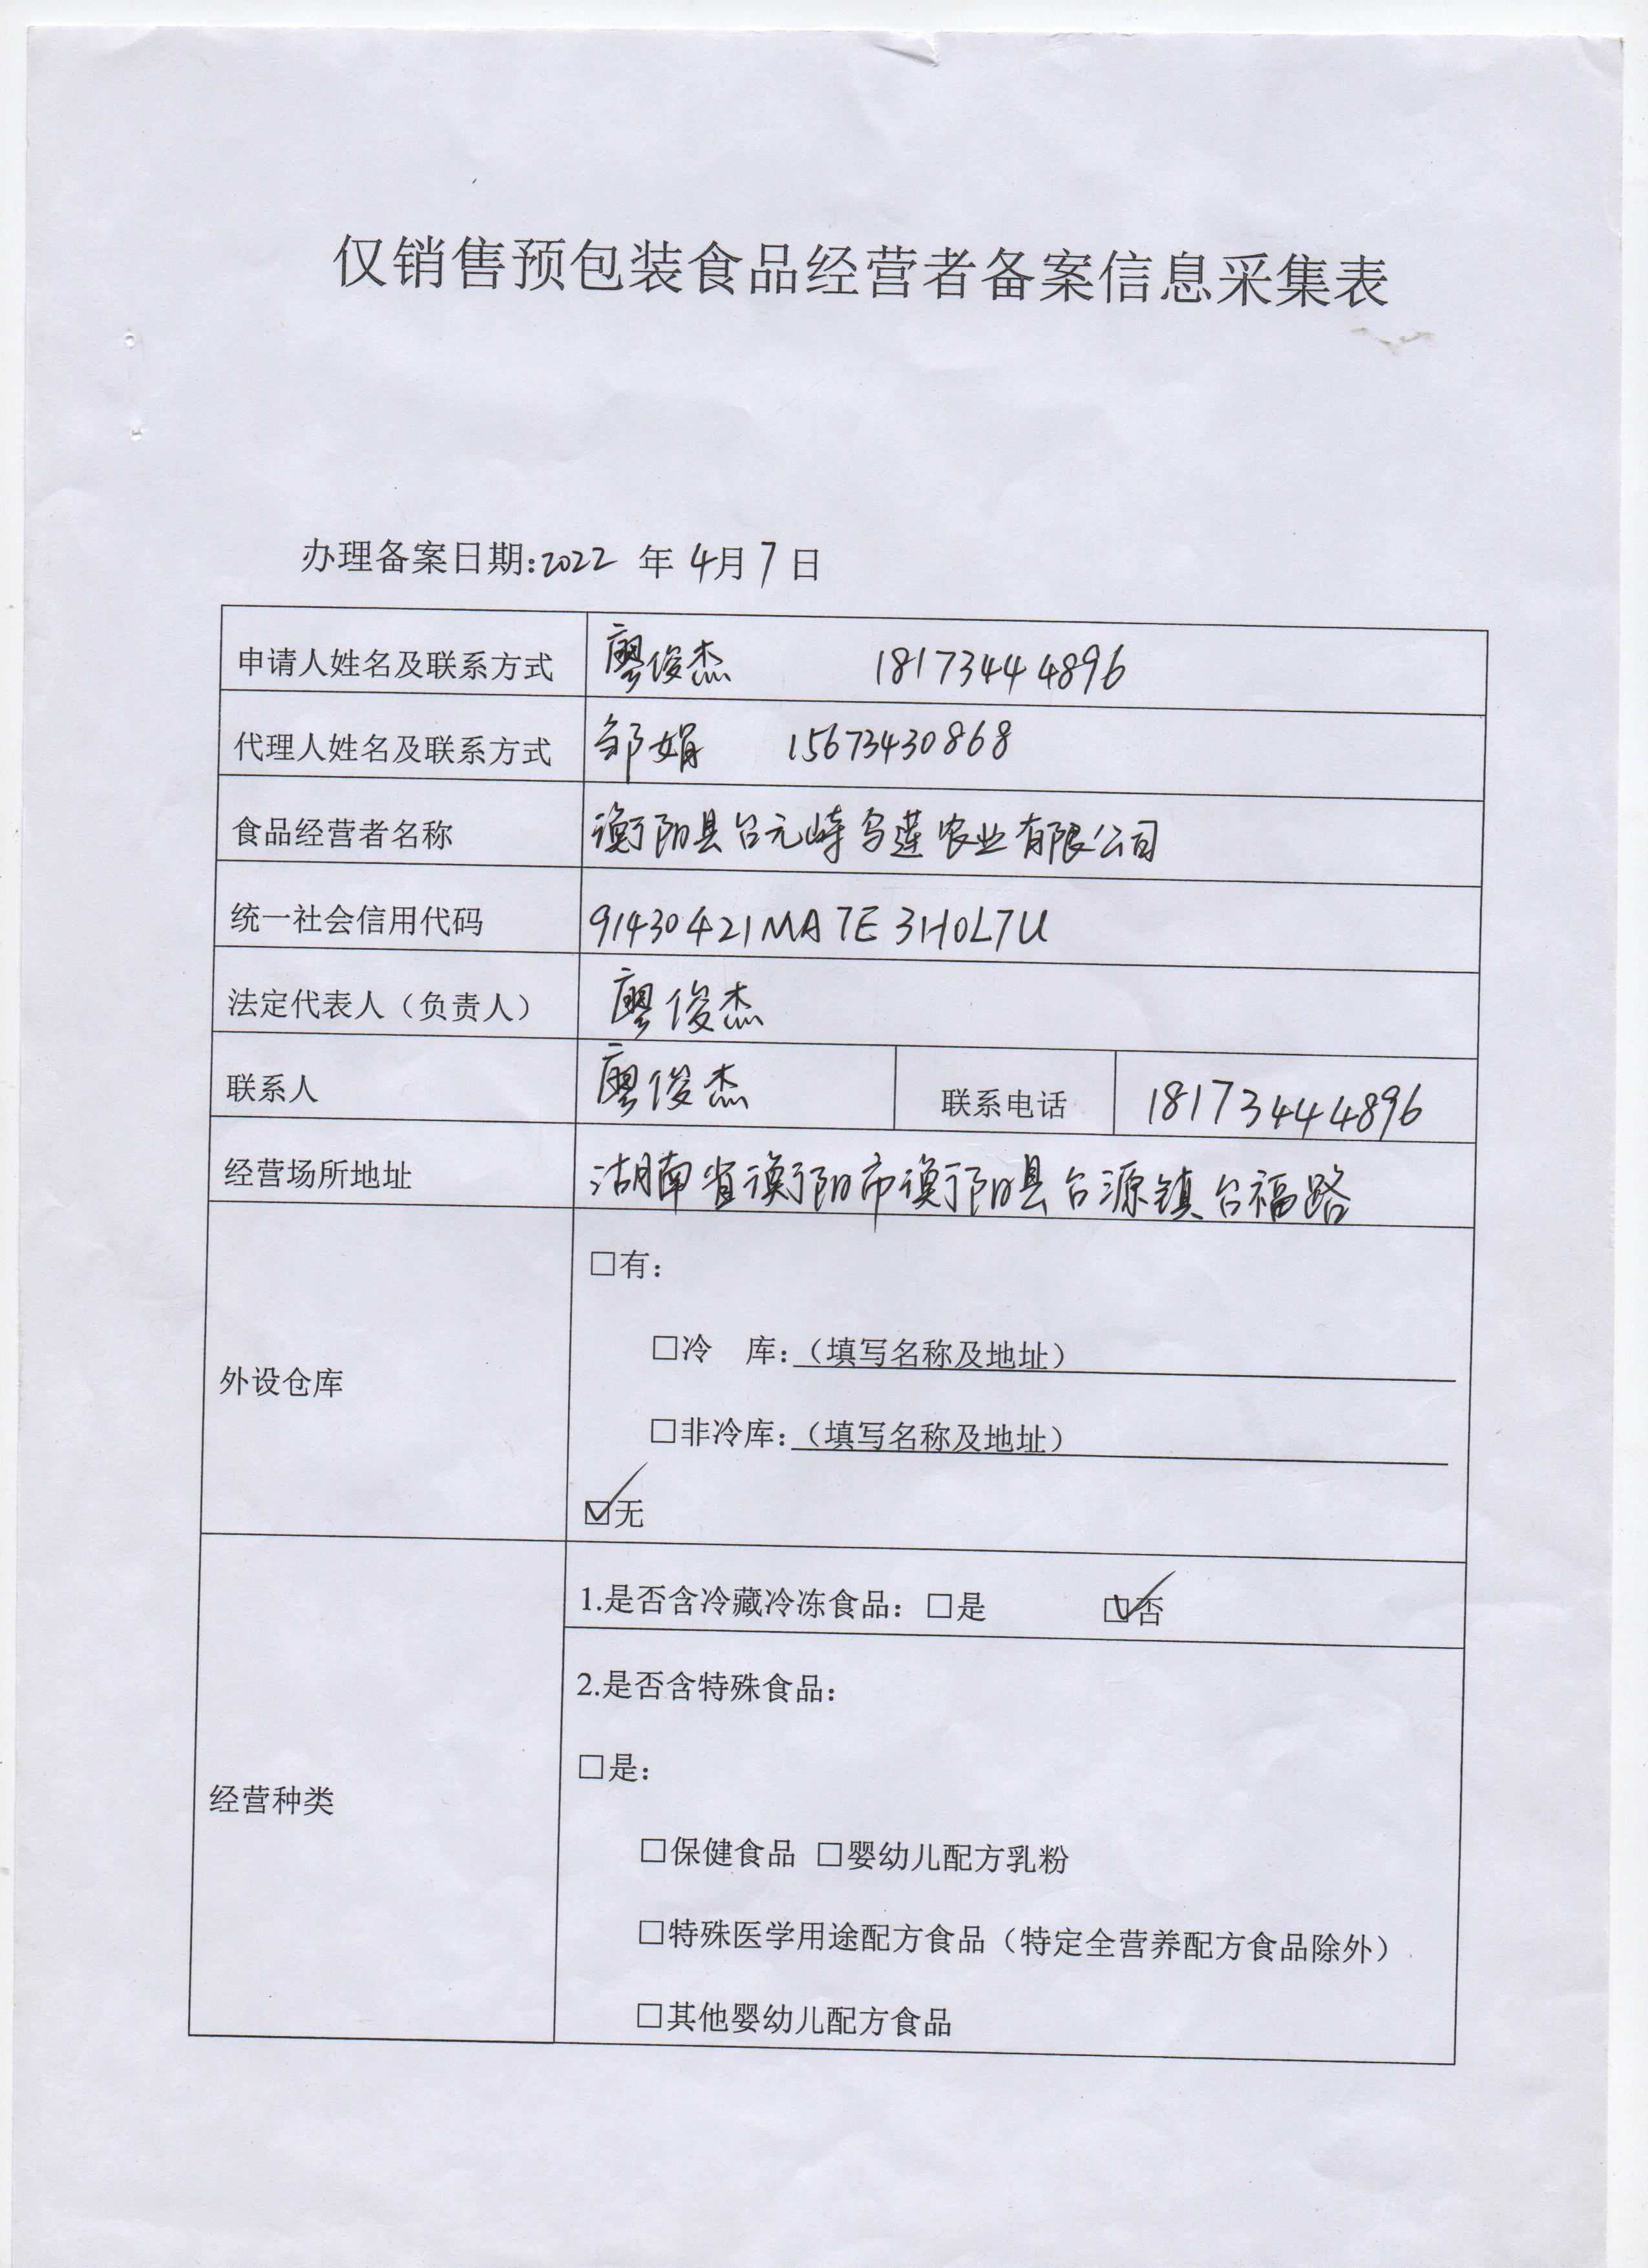 仅销售预包装食品经营者备案信息采集表
办理备案日期:2022 年 4月 7 日
申请人姓名及联系方式 廖俊杰 18173444896
代理人姓名及联系方式 邹娟 15673430868
食品经营者名称 衡阳县台元峙乌莲农业有限公司
统一社会信用代码 91430421MA7E3H0L7U
法定代表人（负责人） 廖俊杰
联系人 廖俊杰 联系电话 18173444896
经营场所地址 湖南省衡阳市衡阳县台源镇台福路
外设仓库
□有：
□冷 库：（填写名称及地址）
□非冷库：（填写名称及地址）
☑无
经营种类
1.是否含冷藏冷冻食品：□是 ☑否
2.是否含特殊食品：
□是：
□保健食品 □婴幼儿配方乳粉
□特殊医学用途配方食品（特定全营养配方食品除外）
□其他婴幼儿配方食品